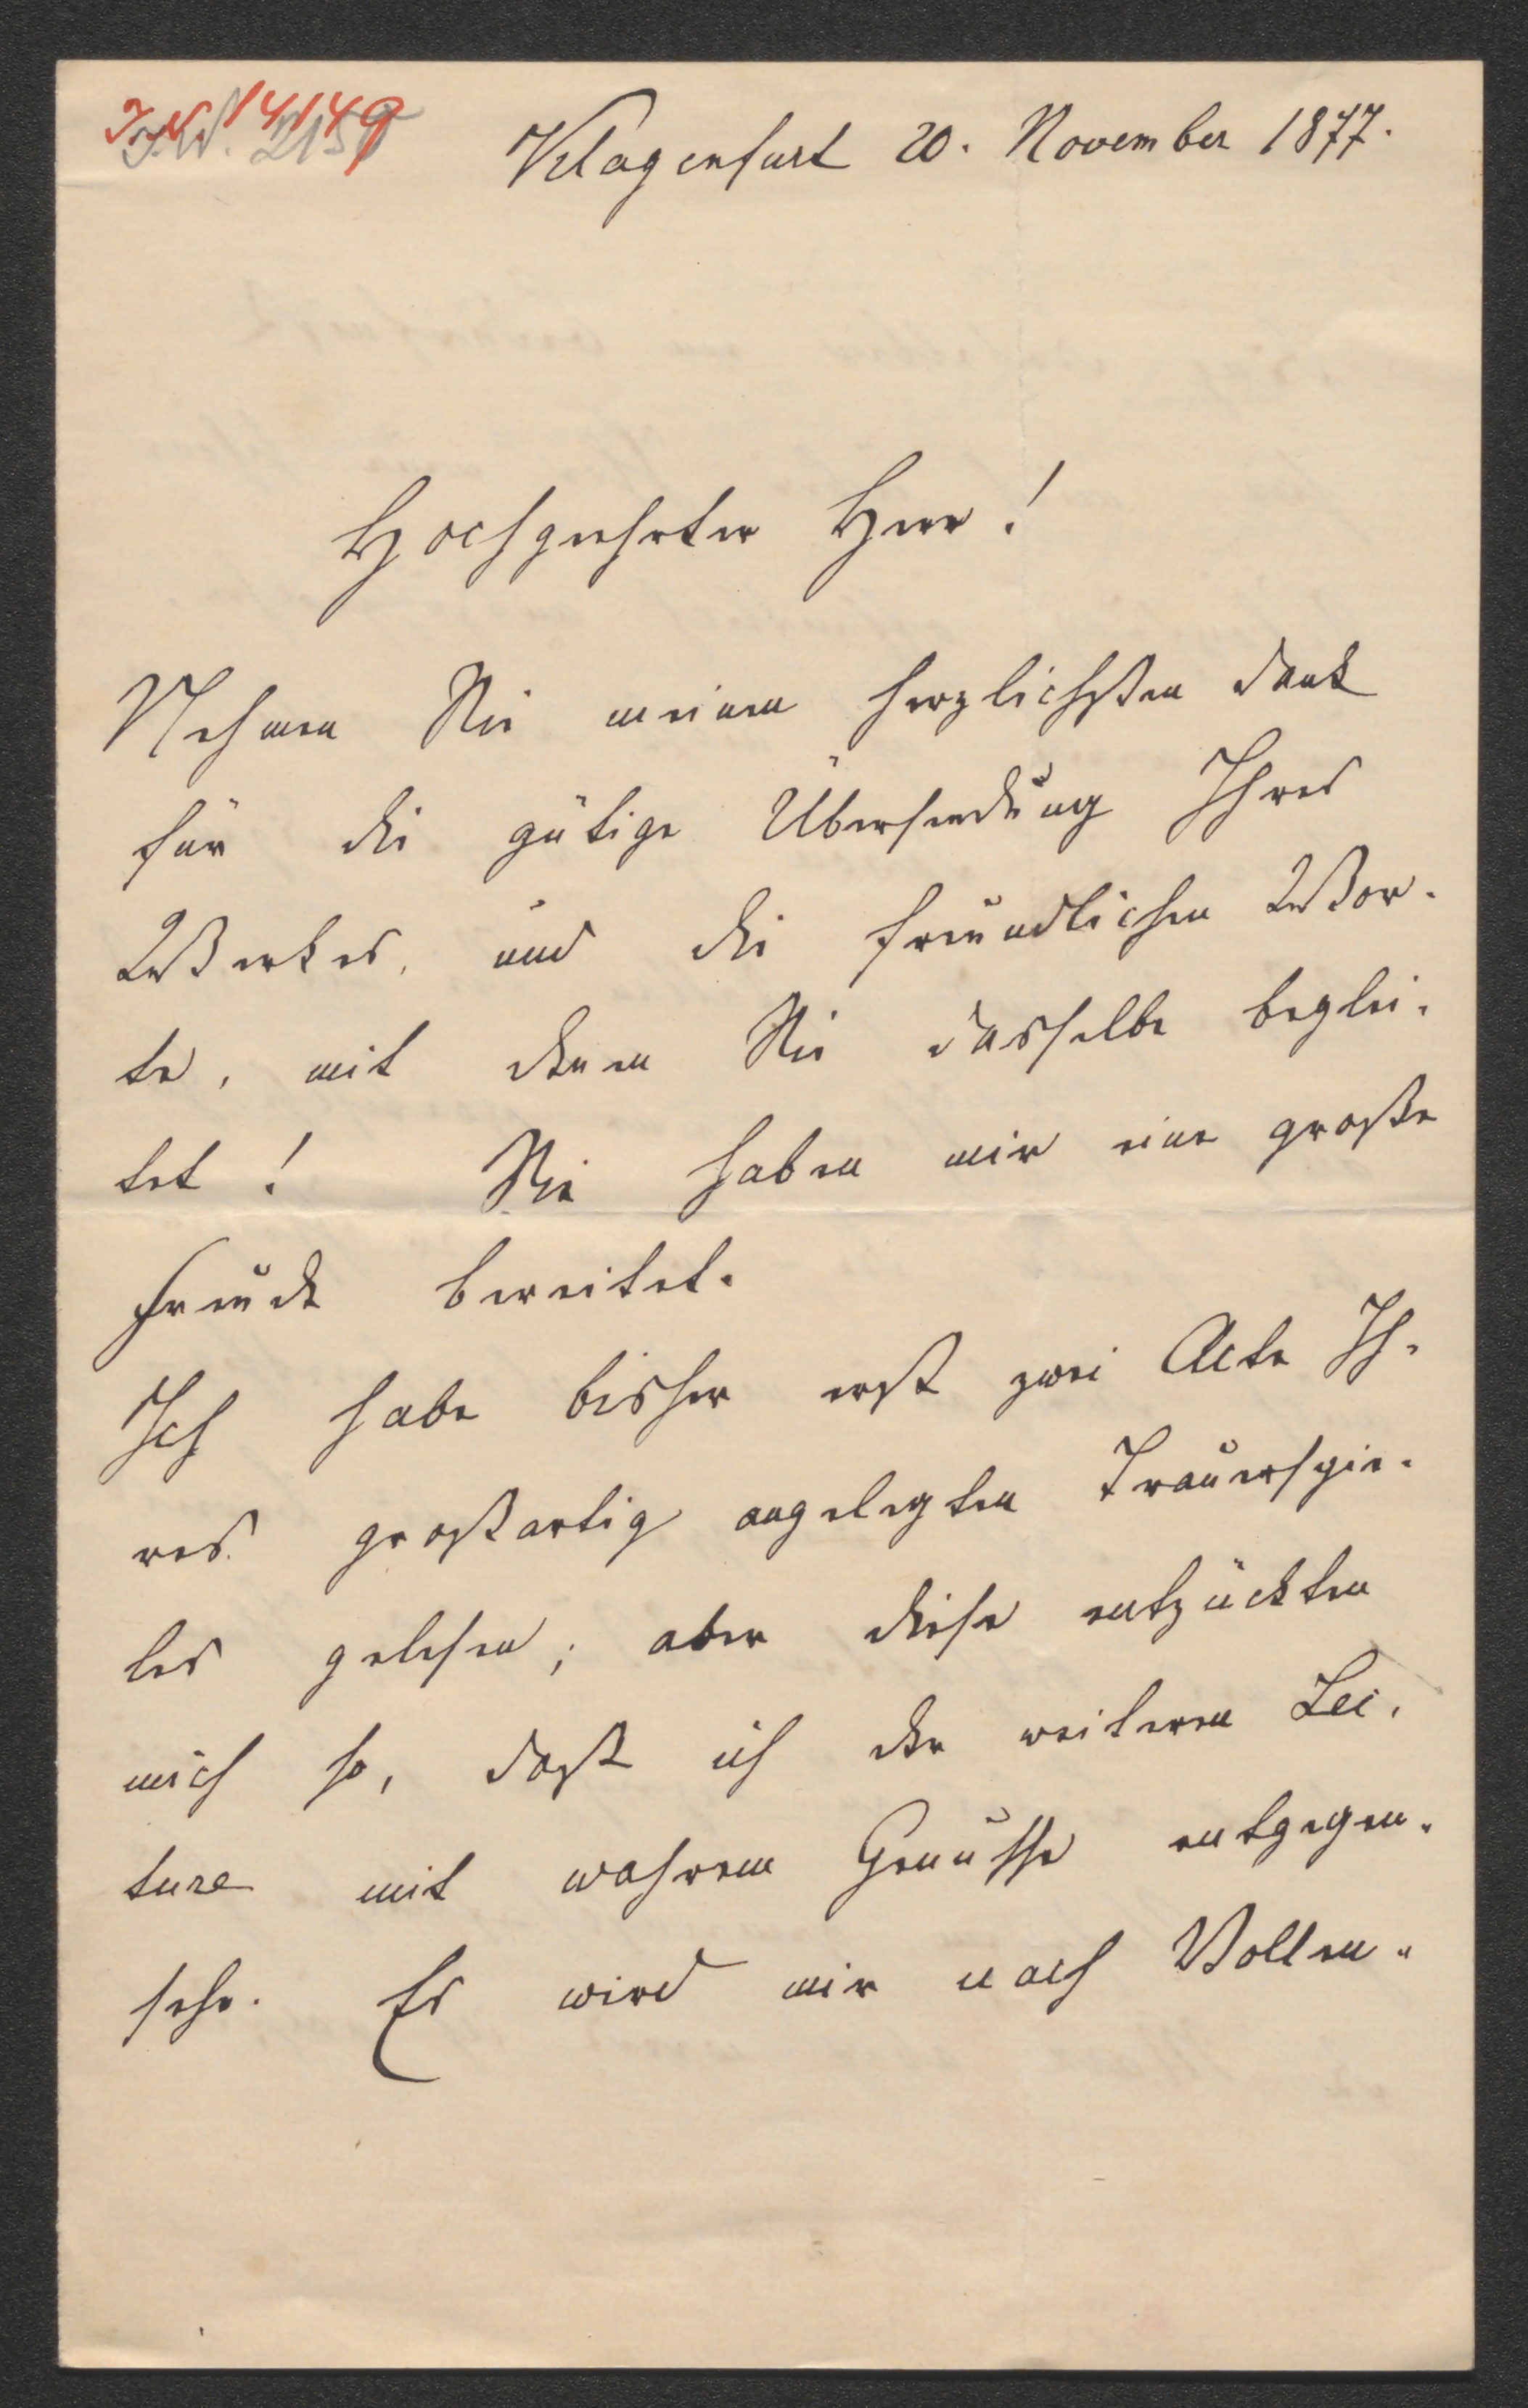 I.N. 14149
Klagenfurt 20. November 1877.
Hochgeehrter Herr!
Nehmen Sie meinen herzlichsten Dank
für die gütige Übersendung Ihres
Werkes, und die freundlichen Wor-
te, mit denen Sie dasselbe beglei-
tet! Sie haben mir eine große
Freude bereitet.
Ich habe bisher erst zwei Acte Ih-
res großartig angelegten Trauerspie-
les gelesen; aber diese entzückten
mich so, daß ich der weiteren Lec-
ture mit wahrem Genusse entgegen-
sehe. Es wird mir nach Vollen-